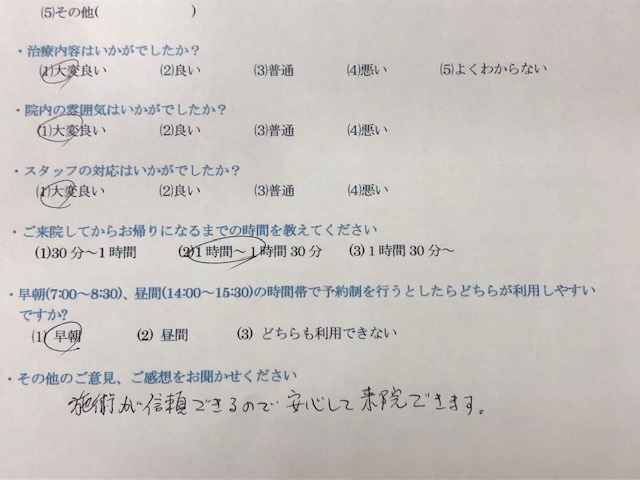 (5)その他(　　　　　　　)
・治療内容はいかがでしたか？
(1)大変良い　(2)良い　(3)普通　(4)悪い　(5)よくわからない
・院内の雰囲気はいかがでしたか？
(1)大変良い　(2)良い　(3)普通　(4)悪い
・スタッフの対応はいかがでしたか？
(1)大変良い　(2)良い　(3)普通　(4)悪い
・ご来院してからお帰りになるまでの時間を教えてください
(1)30分～1時間　(2)1時間～1時間30分　(3)1時間30分～
・早朝(7:00～8:30)、昼間(14:00～15:30)の時間帯で予約制を行うとしたらどちらが利用しやすい
ですか?
(1) 早朝　(2) 昼間　(3) どちらも利用できない
・その他のご意見、ご感想をお聞かせください
施術が信頼できるので安心して来院できます。